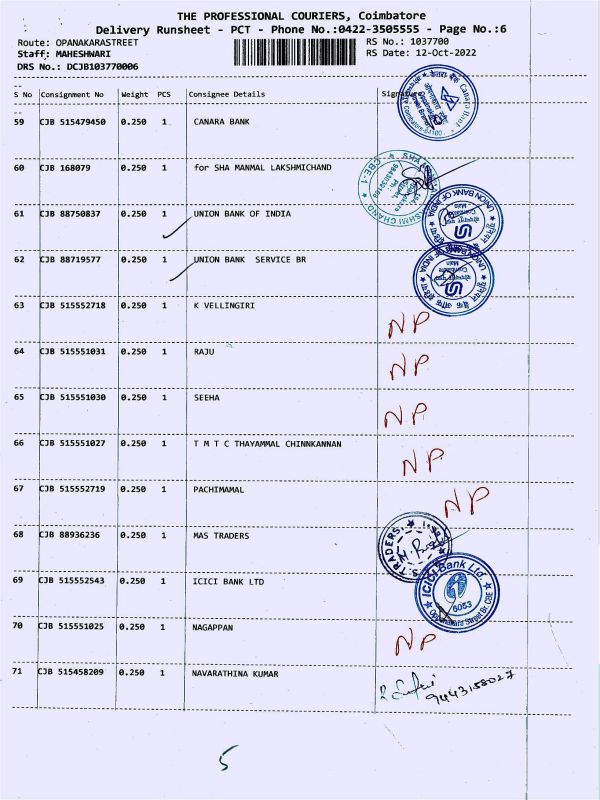 THE PROFESSIONAL COURIERS, Coimbatore
Delivery Runsheet - PCT - Phone No.:0422-3505555 - Page No.:6
Route: OPANAKARASTREET RS No.: 1037700
Staff: MAHESHWARI RS Date: 12-Oct-2022
DRS No.: DCJB103770006
S No Consignment No Weight PCS Consignee Details Signature
59 CJB 515479450 0.250 1 CANARA BANK
60 CJB 168079 0.250 1 for SHA MANMAL LAKSHMICHAND
61 CJB 88750837 0.250 1 UNION BANK OF INDIA
62 CJB 88719577 0.250 1 UNION BANK SERVICE BR
63 CJB 515552718 0.250 1 K VELLINGIRI NP
64 CJB 515551031 0.250 1 RAJU NP
65 CJB 515551030 0.250 1 SEEHA NP
66 CJB 515551027 0.250 1 T M T C THAYAMMAL CHINNKANNAN NP
67 CJB 515552719 0.250 1 PACHIMAMAL NP
68 CJB 88936236 0.250 1 MAS TRADERS
69 CJB 515552543 0.250 1 ICICI BANK LTD ICICI Bank Ltd. 6053
70 CJB 515551025 0.250 1 NAGAPPAN NP
71 CJB 515458209 0.250 1 NAVARATHINA KUMAR 9443158027
5